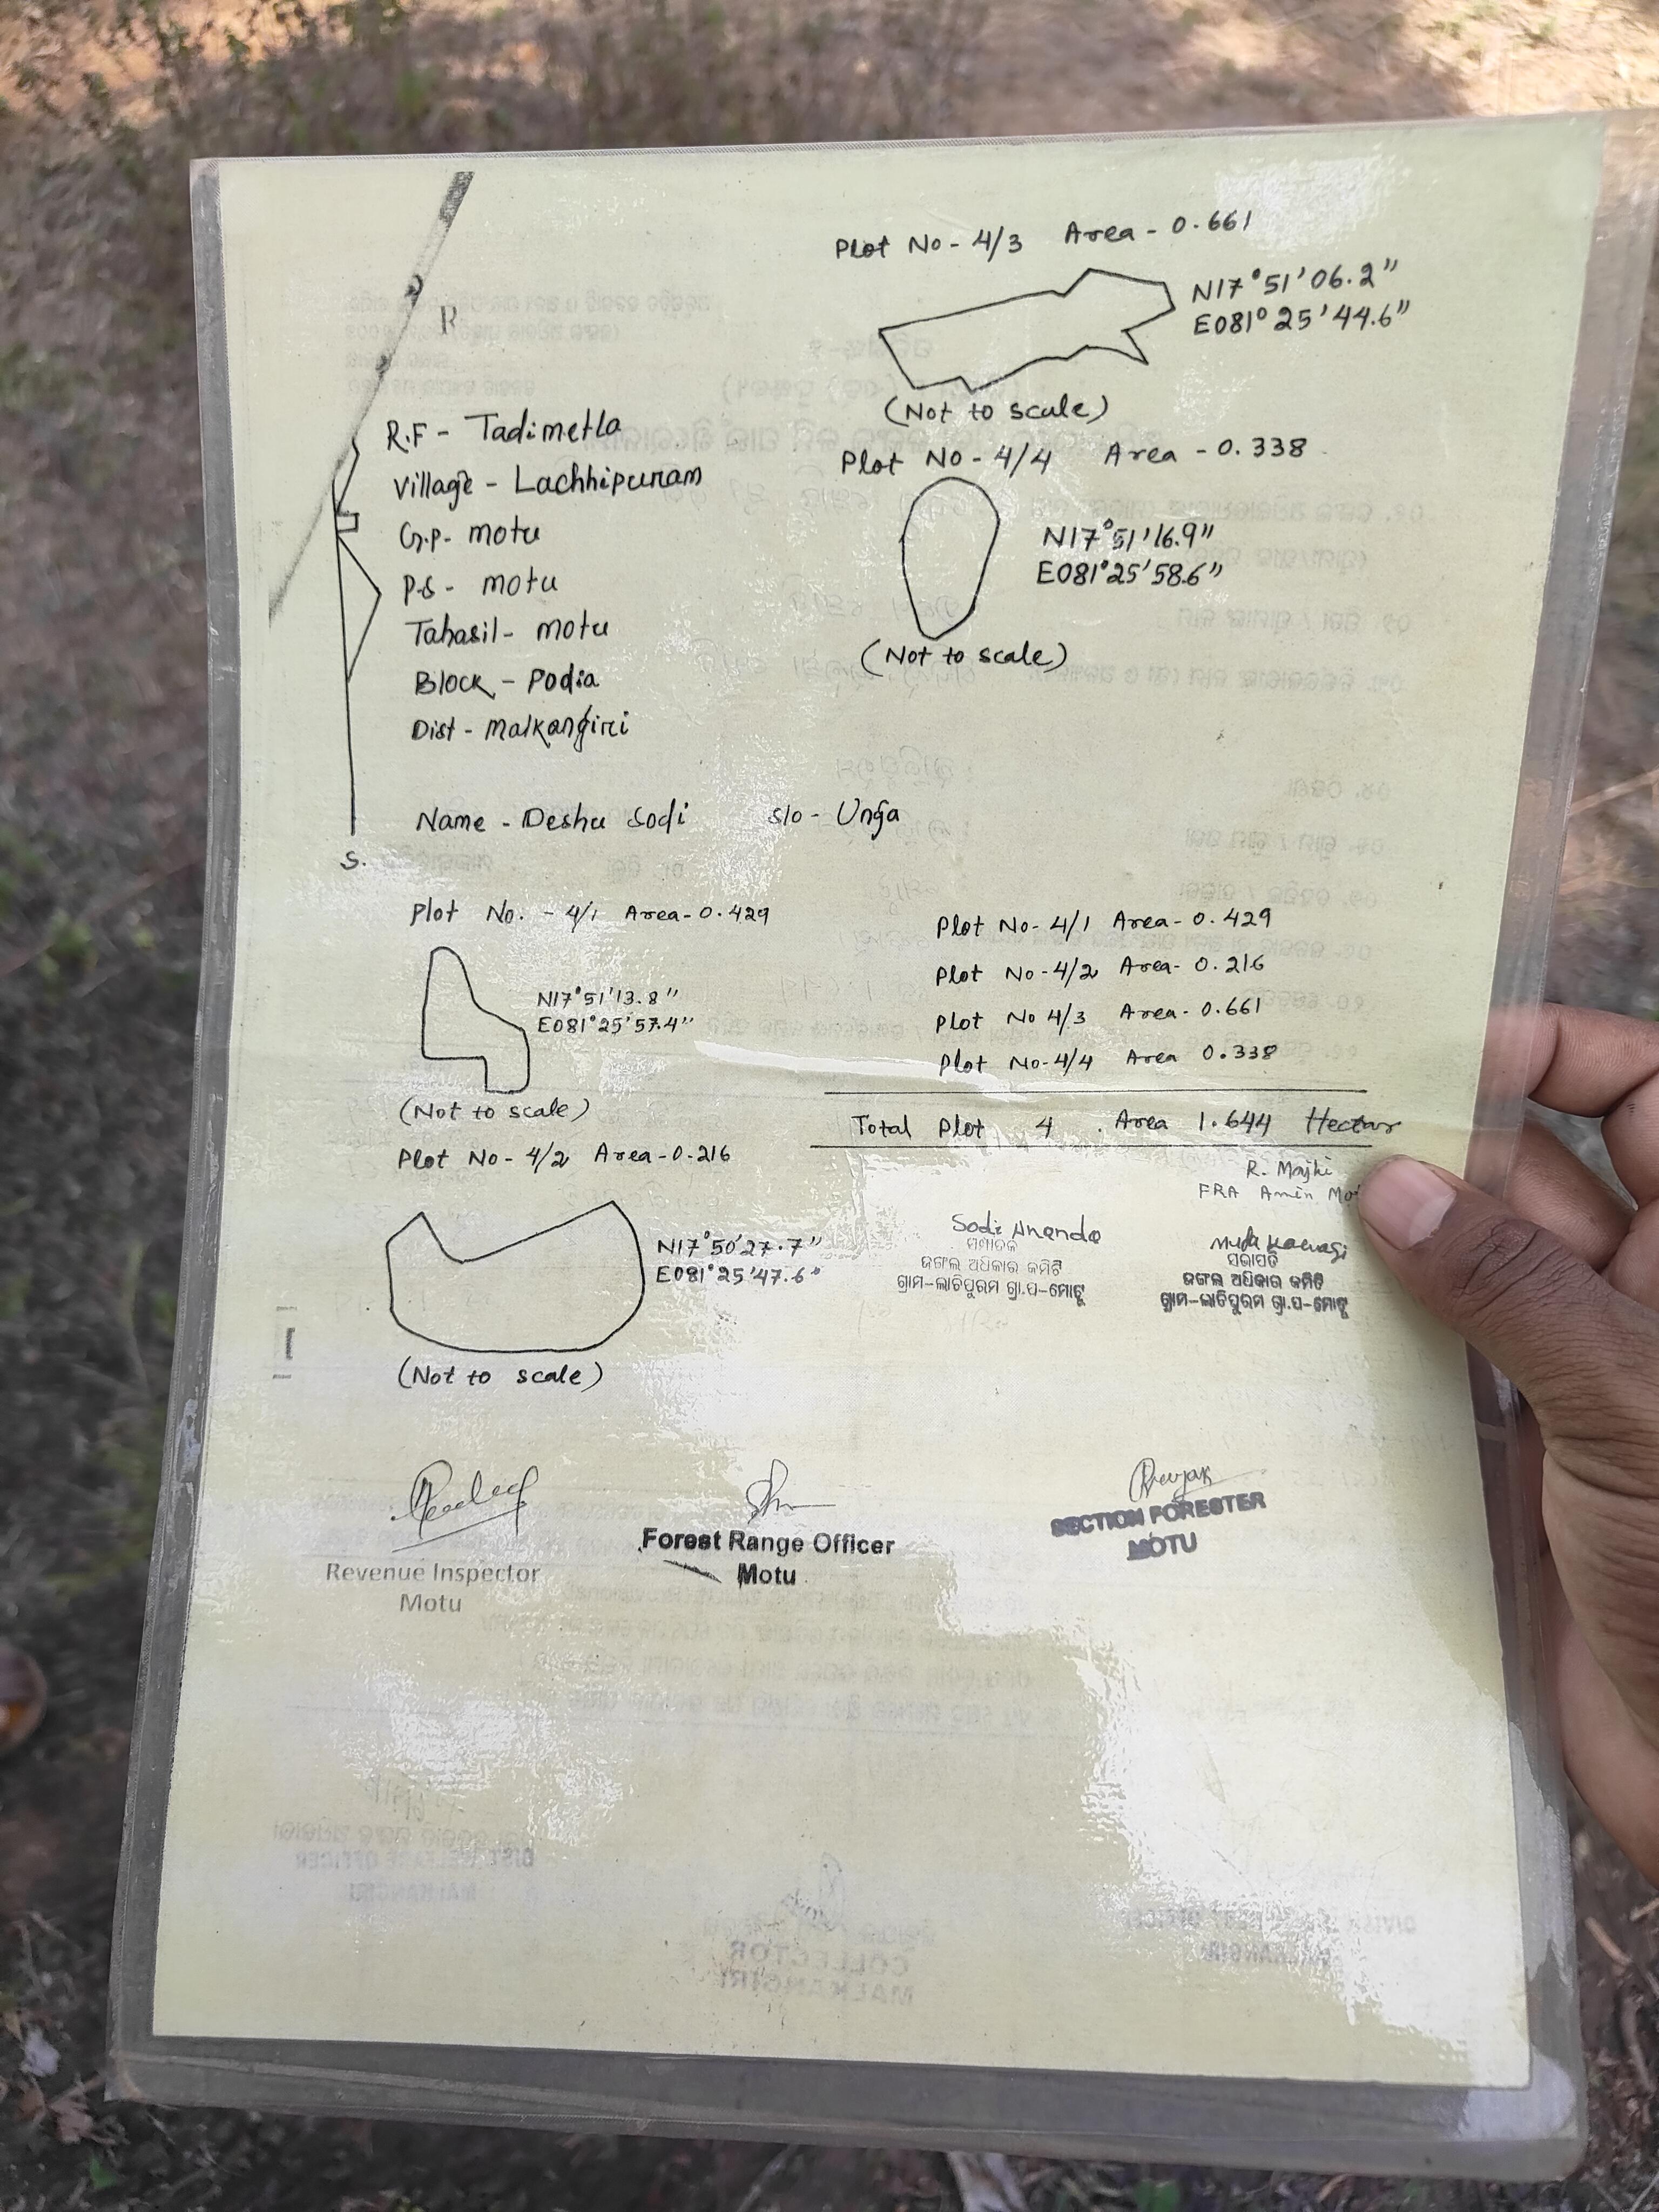 R
R.F - Tadimetla
Village - Lachhipuram
G.P- motu
P.S - motu
Tahasil - motu
Block - Podia
Dist - Malkangiri
Name - Desha Sodi S/o - Unga
S.
Plot No - 4/3 Area - 0.661
N17°51'06.2"
E081°25'44.6"
(Not to scale)
Plot No - 4/4 Area - 0.338
N17°51'16.9"
E081°25'58.6"
(Not to scale)
Plot No. - 4/1 Area - 0.429
N17°51'13.8"
E081°25'57.4"
(Not to scale)
Plot No - 4/2 Area - 0.216
N17°50'27.7"
E081°25'47.6"
(Not to scale)
Plot No - 4/1 Area - 0.429
Plot No - 4/2 Area - 0.216
Plot No 4/3 Area - 0.661
Plot No - 4/4 Area 0.338
Total Plot 4 . Area 1.644 Hectar
R. Majhi
FRA Amin Mot
Sodi Ananda
ସମ୍ପାଦକ
ଜଙ୍ଗଲ ଅଧିକାର କମିଟି
ଗ୍ରାମ-ଲାଚିପୁରମ ଗ୍ରା.ପ-ମୋଟୁ
ସଭାପତି
ଜଙ୍ଗଲ ଅଧିକାର କମିଟି
ଗ୍ରାମ-ଲାଚିପୁରମ ଗ୍ରା.ପ-ମୋଟୁ
Revenue Inspector
Motu
Forest Range Officer
Motu
SECTION FORESTER
MOTU